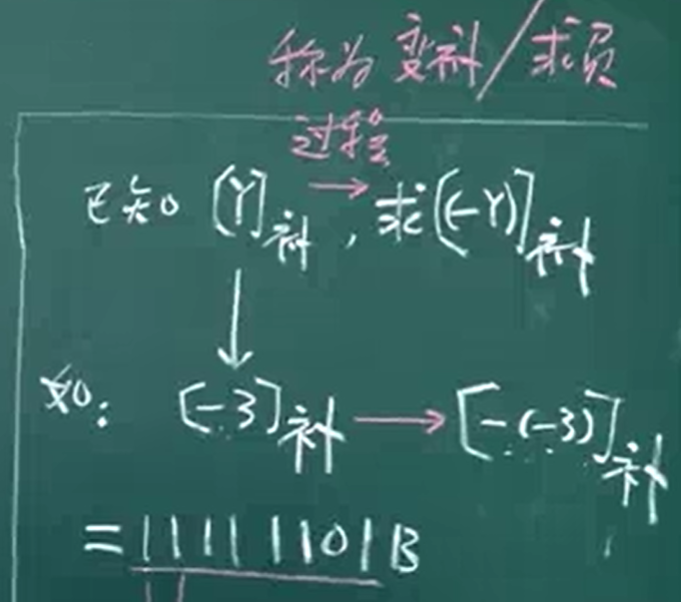 称为变补/求负
过程
已知 [Y]补 → , 求[(-Y)]补
↓
如: [-3]补 → [-(-3)]补
=11111101B